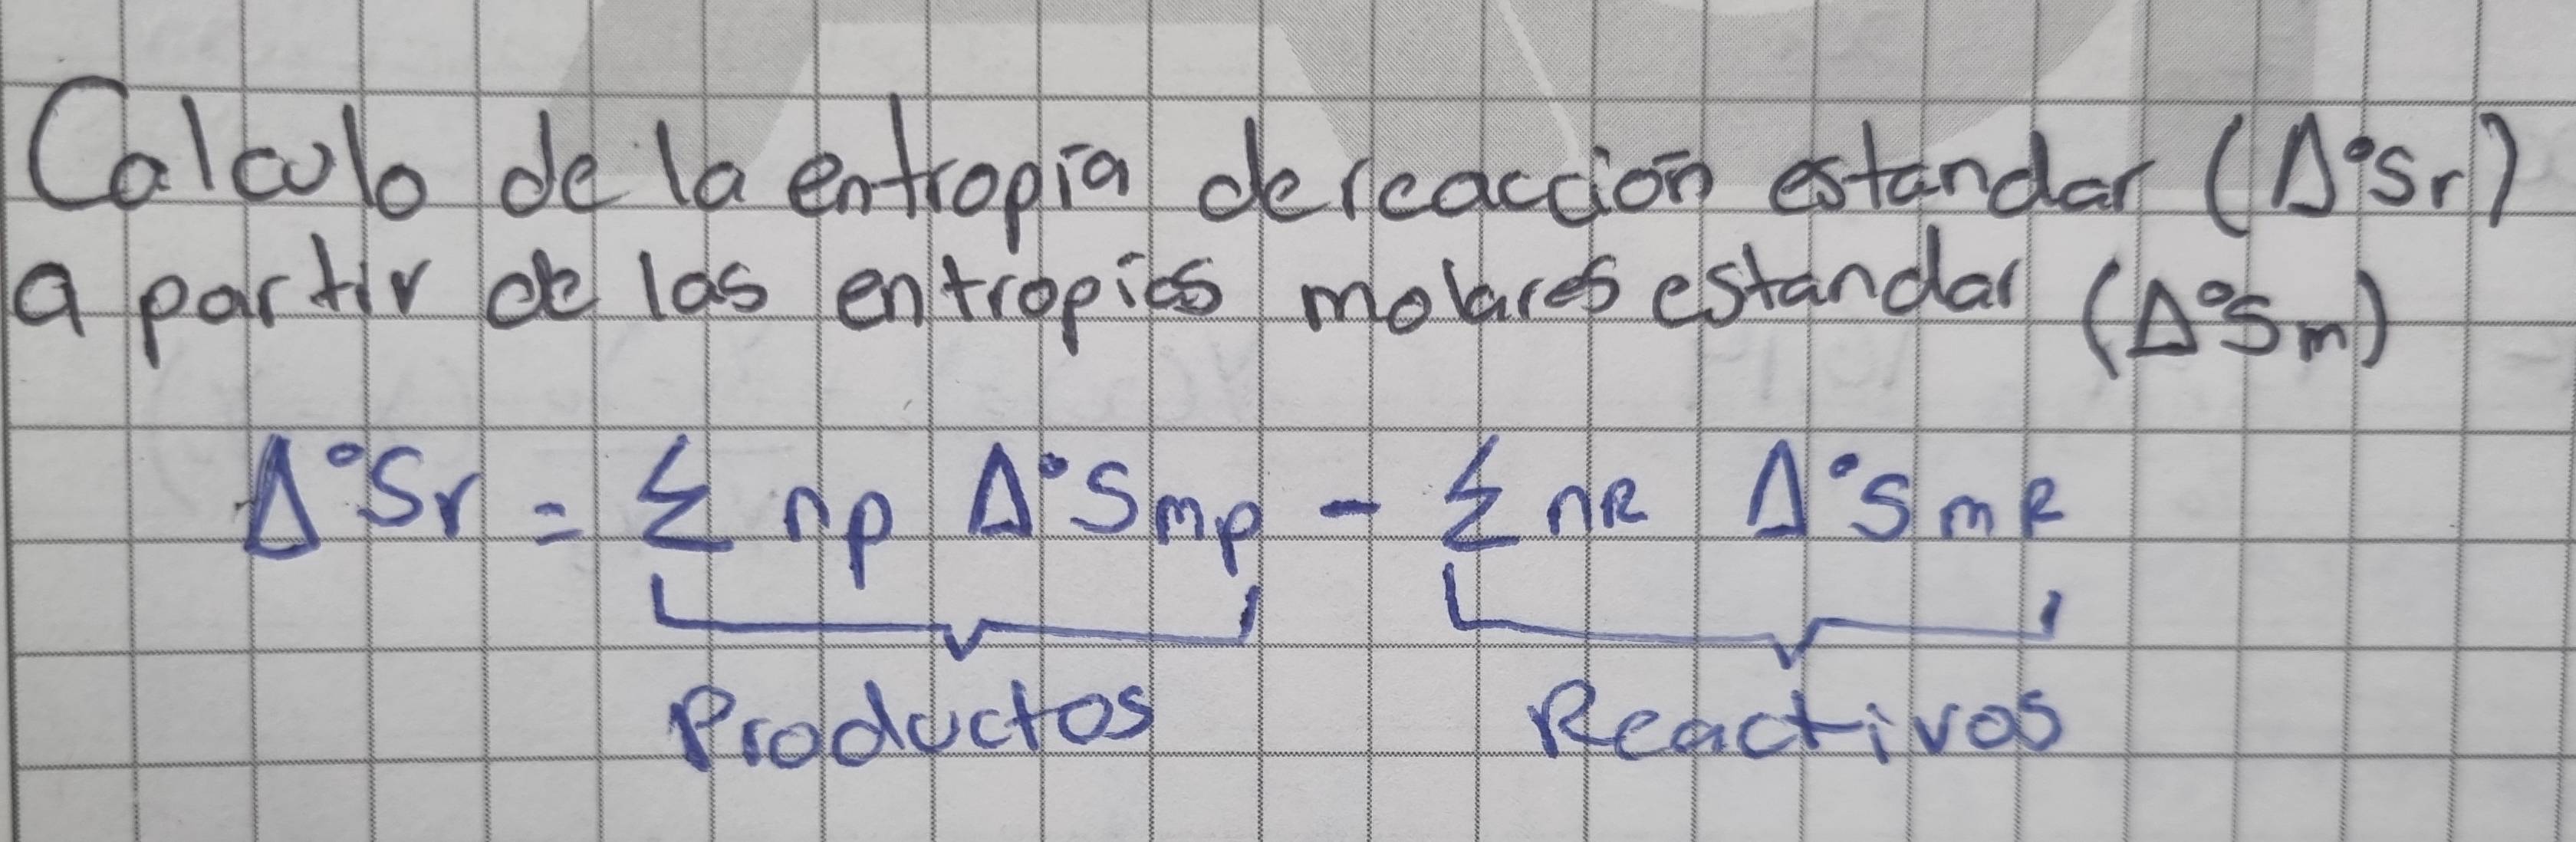 Calculo de la entropía de reacción estandar (Δ°Sr)
a partir de las entropias molares estandar (Δ°Sm)
Δ°Sr = Σ np Δ°Smp - Σ nR Δ°SmR
Productos Reactivos